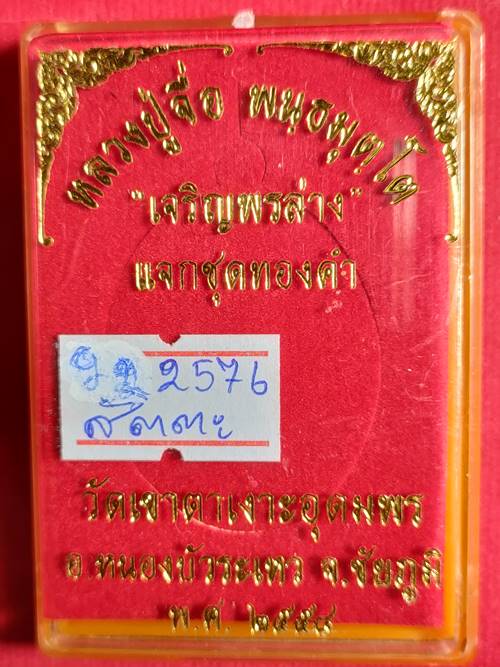 หลวงปู่จื่อ พนฺธมุตฺโต
"เจริญพรล่าง"
แจกชุดทองคำ
2576
สัตตะ
วัดเขาตาเงาะอุดมพร
อ.หนองบัวระเหว จ.ชัยภูมิ
พ.ศ. ๒๕๕๘